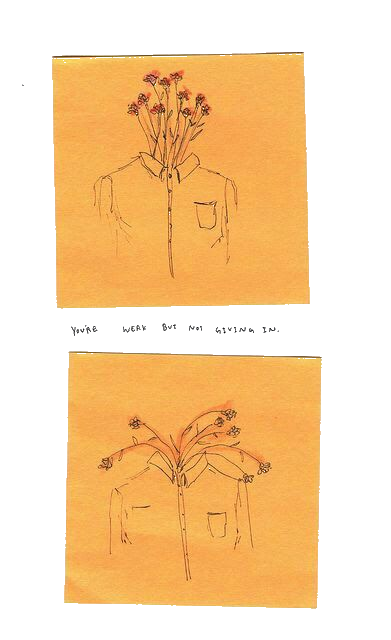 YOU'RE WEAK BUT NOT GIVING IN.